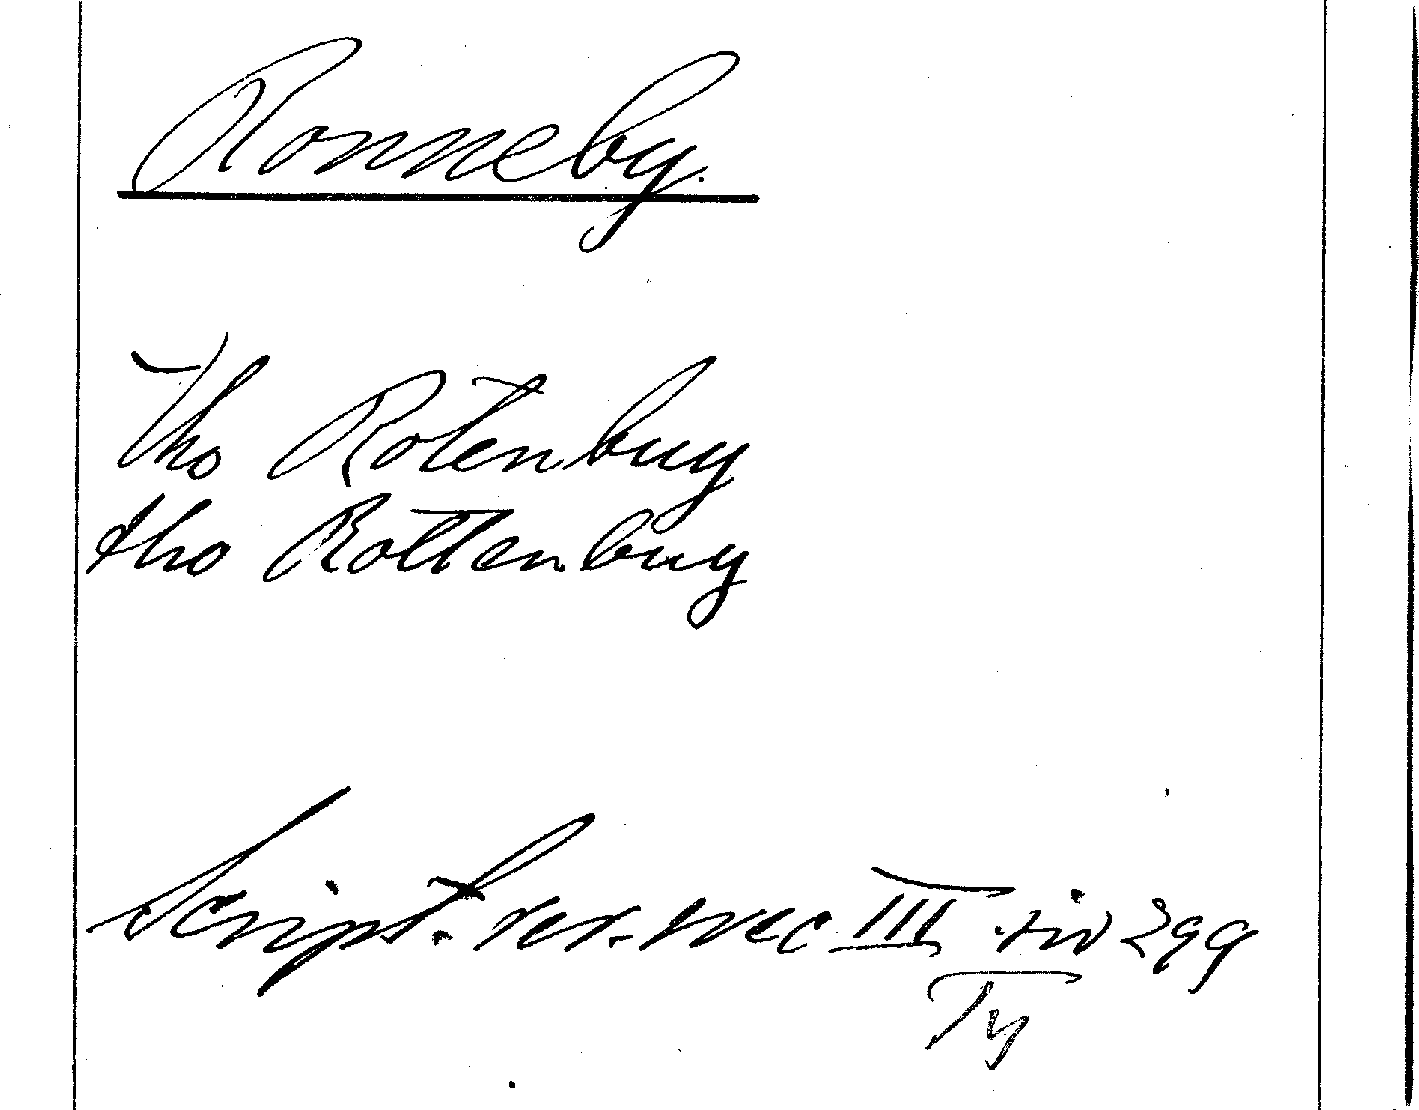 Ronneby.
Tho Rotenbuy
tho Rottenbuy
Script. rer. svec III sid 299
Ty